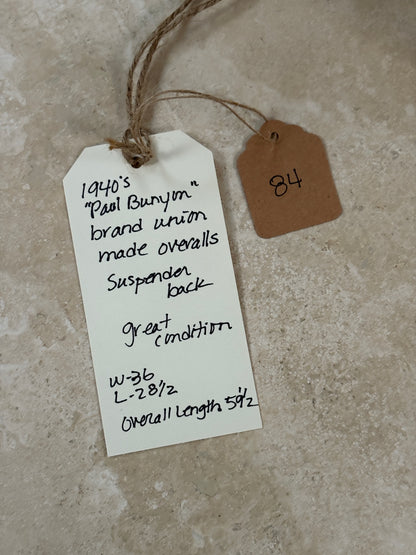 1940's
"Paul Bunyon"
brand union
made overalls
Suspender
back
great
condition
W-36
L-28 1/2
Overall Length 59 1/2
84